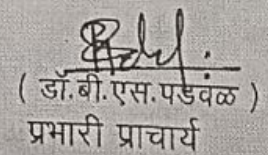 ( डॉ.बी.एस.पडवळ )
प्रभारी प्राचार्य